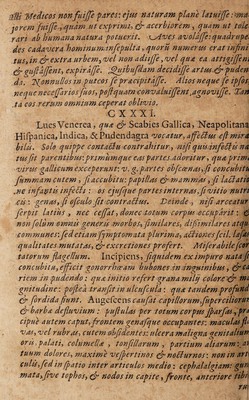 illi Medicos non fuisse pares: ejus naturam planè latuisse: la
porem fuisse, quàm ut exprimi, & acerbiorem, quàm ut tole
rari ab humana natura potuerit. Aves avolasse: quadrupe-
des cadavera hominum insepulta, quorū numerus erat infini
tus, in & extra urbem, vel non adiisse, vel qua ea attigissent
& gustâssent, expirâsse. Quibusdam decidisse artus & puden
da. Nonnullos in puteos se præcipitâsse. Alios neque se ipsos
neque necessarios suos, postquam convaluissent, agnovisse. Tan
ta eos rerum omnium ceperat oblivio.
CXXXI.
Lues Venerea, quæ & Scabies Gallica, Neapolitana
Hispanica, Indica, & Pudendagra vocatur, affectus est mira
bilis. Solo quippe contactu contrahitur, nisi quis infectū na
tus sit parentibus: primumque eas partes adoratur, qua prim
virus gallicum exceperunt: v. g. partes obscænas, si concubitu
summam cutem, si accubitu: papillas & mammas, si lactatio
ne infantis infecti: os ejusque partes internas, si vitio nutri
cis: genas, si osculo sit contractus. Deinde, nisi arceatur
serpit latius, nec cessat, donec totum corpus occupârit:
non solùm omnis generis morbos, similares, dissimilares atque
communes: sed etiam symptomata plurima, actiones scil. læsas
qualitates mutatas, & excrettiones profert. Miserabile scor
tatorum flagellum. Incipiens, siquidem ex impuro nata sit
concubitu, efficit gonorrhœam bubones in inguinibus, & ca
rtem in pudendis: quæ initio refert grana milii colore & ma
gnitudine: postea transit in ulcuscula: quæ tandem profunda
& sordida fiunt. Augescens causat capillorum, superciliorum
& barbæ defluvium: pustulas per totum corpus sparsas, præ
cipuè autem caput, frontem genasque occupantes: maculas fla
vas, vel rubras, cutem obsidentes: ulcera maligna genitalium
oris palati, columellæ, tonsillarum, partium aliarum:
tuum dolores, maximè vespertinos & nocturnos: non in arti
culis, sed in spatio inter articulos medio: cephalalgiam: gum
mata, sive tophos, & nodos in capite, fronte, anteriore tibia